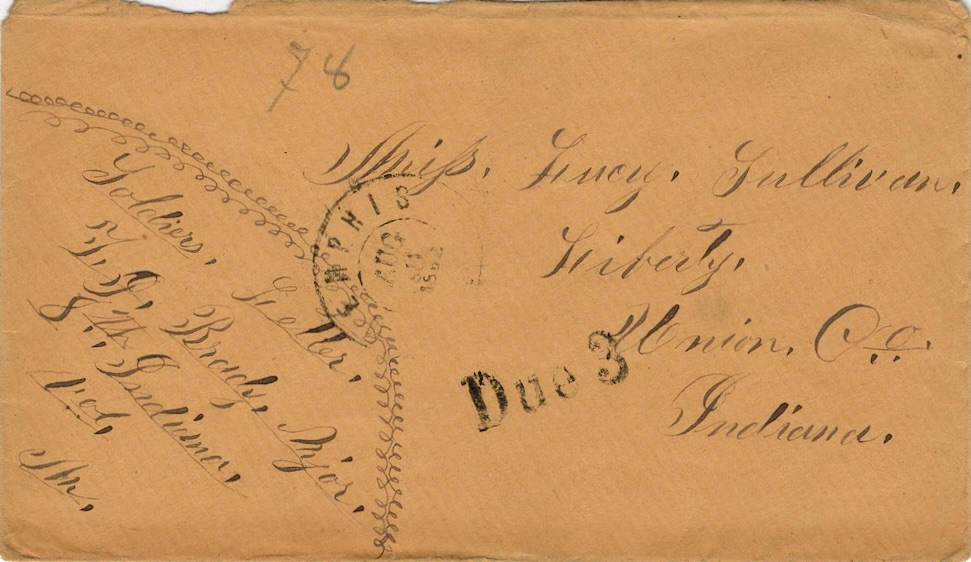 78
Miss. Lucy. Sullivan.
Liberty.
Union. Co.
Indiana.
MEMPHIS
AUG
1862
Due 3
Soldiers, Letter,
Brady, Mjor,
8.. th Indiana,
Vol,